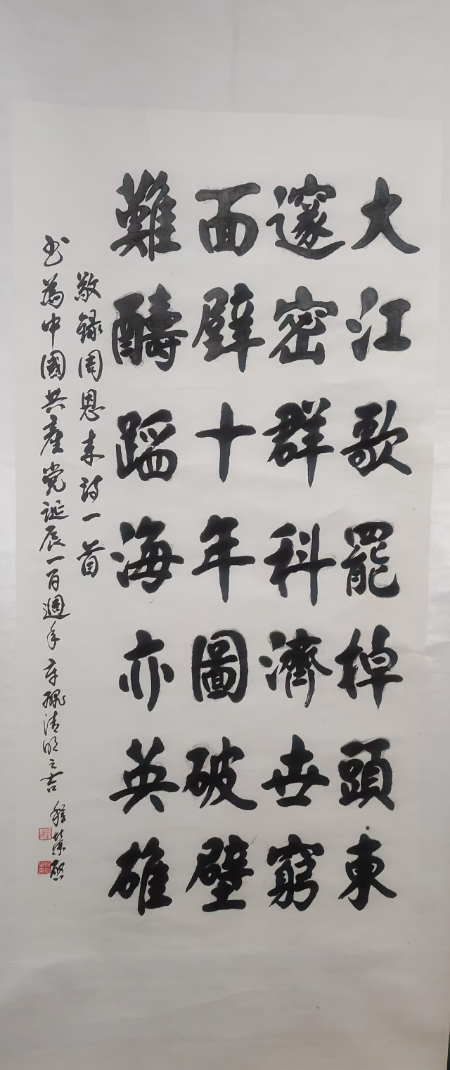 大江歌罷掉頭東
邃密群科濟世窮
面壁十年圖破壁
難酬蹈海亦英雄
敬録周恩来詩一首
书為中國共產党誕辰一百週年 辛 清明之吉